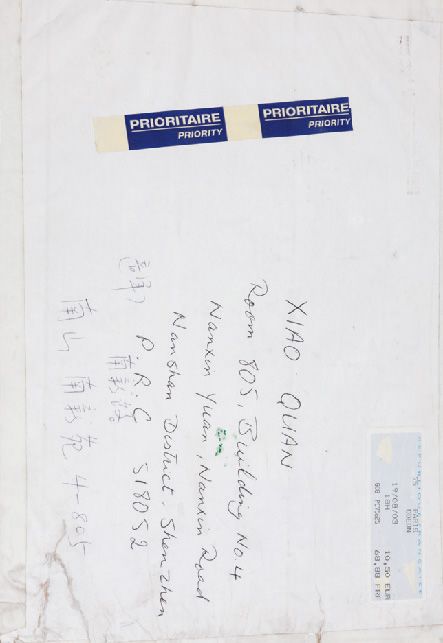 PRIORITAIRE
PRIORITY
PRIORITAIRE
PRIORITY
XIAO QUAN
Room 805, Building No 4
Nanxin Yuan, Nanxin Road
Nanshan District. Shenzhen
P.R.C 518052
南新路
南山 南新苑 4-805
PARIS
19/08/03
10,50 EUR
68,88 FRF